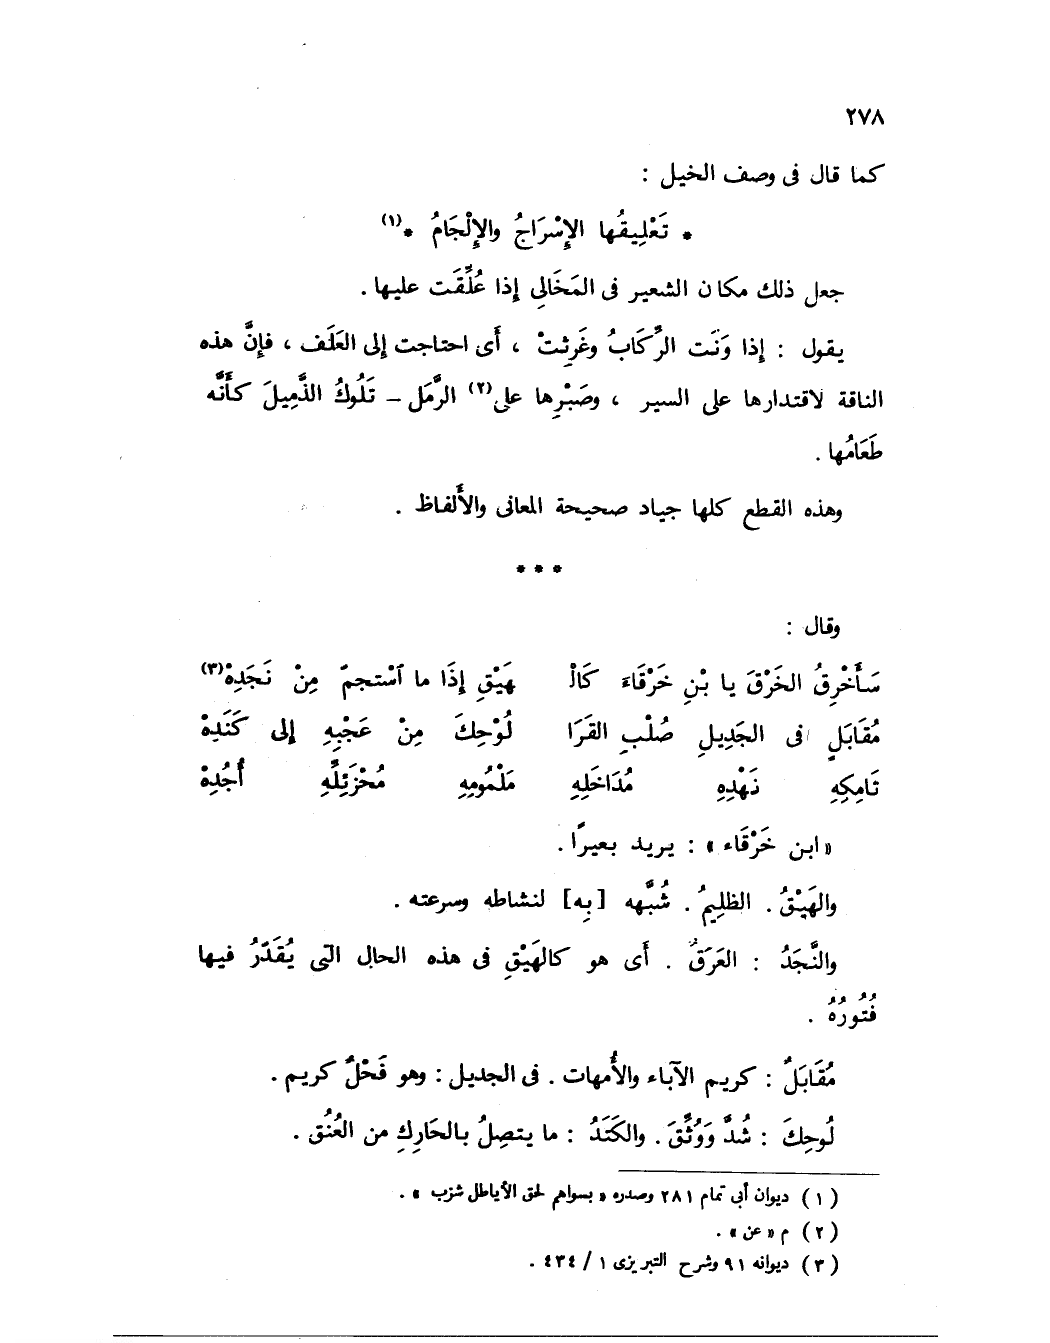 ٢٧٨
كما قال فى وصف الخيل :
* تَعْلِيقُها الإِسْرَاجُ والإِلْجَامُ *(١)
جعل ذلك مكان الشعير فى المَخَالِى إذا عُلِّقَت عليها .
يقول : إذا وَنَت الرِّكَابُ وغَرِثتْ ، أَى احتاجت إلى العَلَف ، فإِنَّ هذه
الناقة لاقتدارها على السير ، وصَبْرِها على(٢) الرَّمَل – تَلُوكُ الذَّمِيلَ كأَنَّه
طَعَامُها .
وهذه القطع كلها جياد صحيحة المعانى والأَلفاظ .
* * *
وقال :
سَأَخْرِقُ الخَرْقَ يا بْنِ خَرْقَاءَ كَالْ هَيْقِ إِذَا ما اسْتجمّ مِنْ نَجَدِهْ(٣)
مُقَابَلٍ فى الجَدِيلِ صُلْبِ القَرَا لُوْحِكَ مِنْ عَجْبِهِ إلى كَتَدِهْ
تَامِكِهِ نَهْدِهِ مُدَاخَلِهِ مَلْمُومِهِ مُحْزَئِلِّهِ أُجُدِهْ
« ابن خَرْقَاء » : يريد بعيرًا .
والهَيْقُ . الظليمُ . شُبَّهه [بِه] لنشاطه وسرعته .
والنَّجَدُ : العَرَقُ . أَى هو كالهَيْقِ فى هذه الحال التى يُقَدّرُ فيها
فُتُورُهُ .
مُقَابَلٌ : كريم الآباء والأُمهات . فى الجديل : وهو فَحْلٌ كريم .
لُوحِكَ : شُدَّ وَوُثِّقَ . والكَتَدُ : ما يتصِلُ بالحَارِكِ من العُنُق .
(١) ديوان أبى تمام ٢٨١ وصدره « بسواهم لحق الأياطل شزب » .
(٢) م « عن » .
(٣) ديوانه ٩١ وشرح التبريزى ١ / ٤٣٤ .